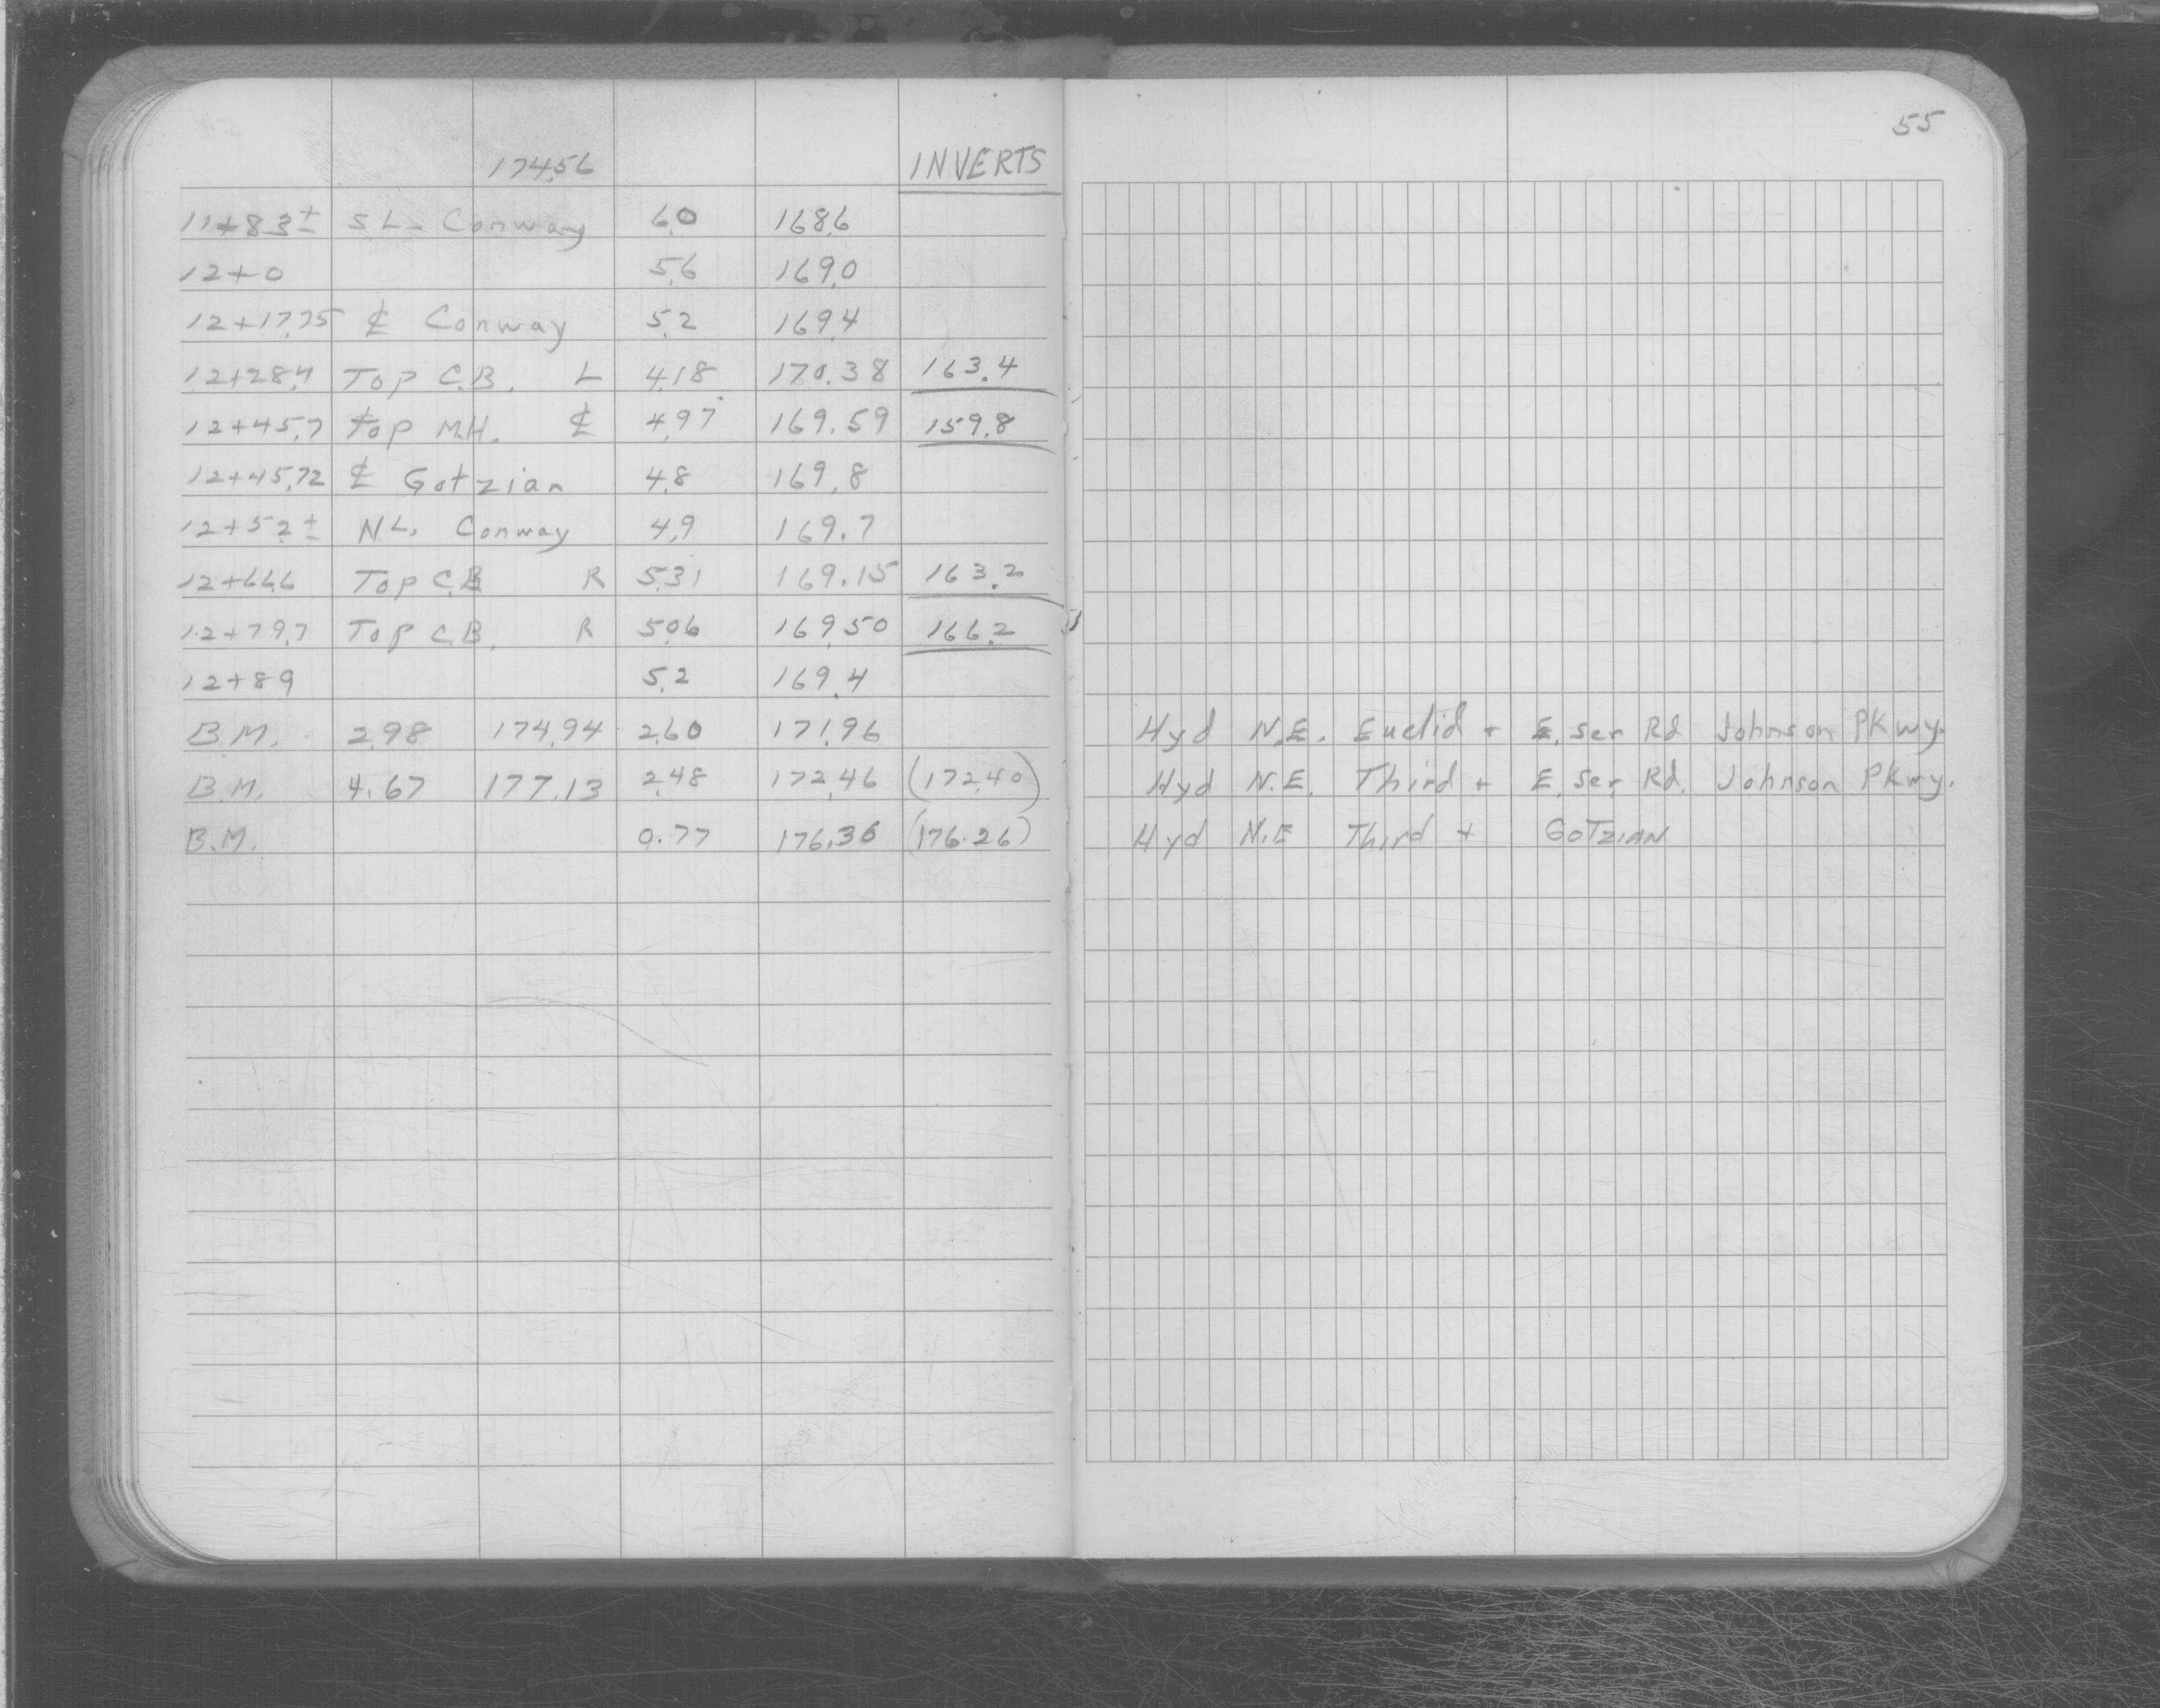 55
174.56 INVERTS
11+83± S L. Conway 6.0 168.6
12+0 5.6 169.0
12+17.75 ℄ Conway 5.2 169.4
12+28.4 Top C.B. L 4.18 170.38 163.4
12+45.7 Top M.H. ℄ 4.97 169.59 159.8
12+45.72 ℄ Gotzian 4.8 169.8
12+52± N L. Conway 4.9 169.7
12+66.6 Top C.B R 5.31 169.15 163.2
12+79.7 Top C.B. R 5.06 169.50 166.2
12+89 5.2 169.4
B.M. 2.98 174.94 2.60 171.96 Hyd N.E. Euclid + E. Ser Rd Johnson Pkwy.
B.M. 4.67 177.13 2.48 172.46 (172.40) Hyd N.E. Third + E. Ser. Rd. Johnson Pkwy.
B.M. 0.77 176.36 (176.26) Hyd N.E Third + GOTZIAN